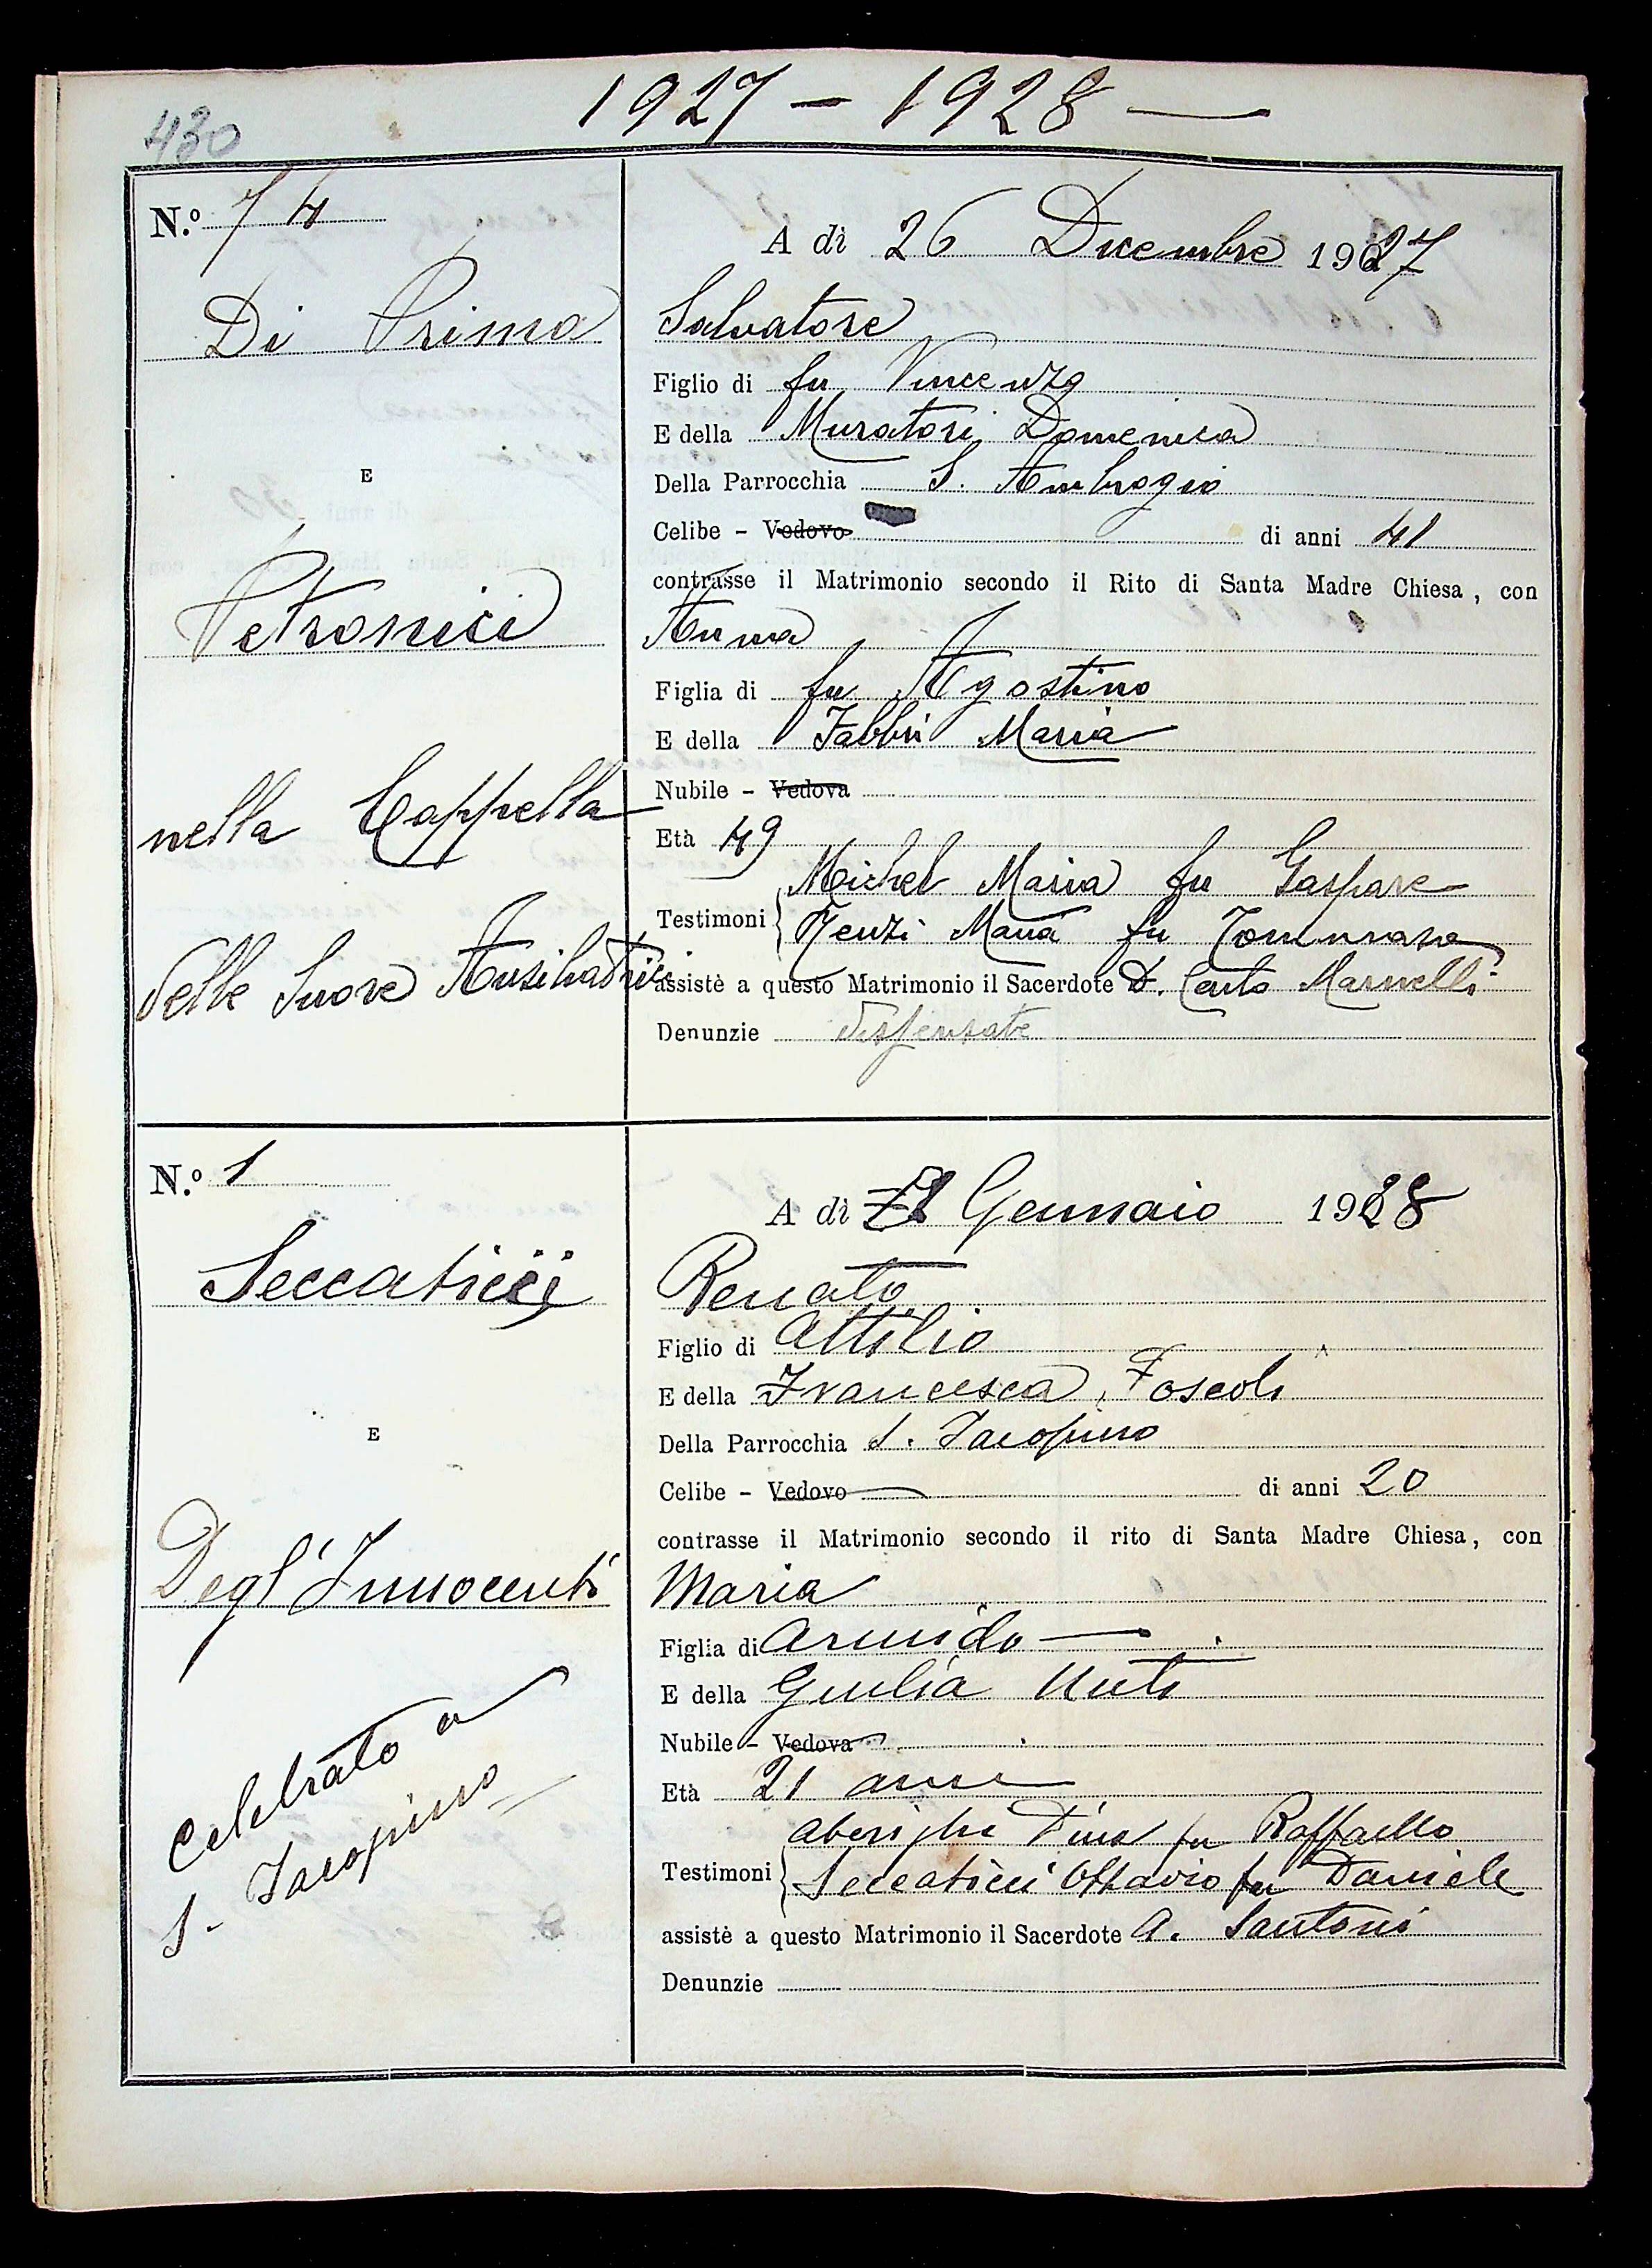 1927 - 1928 -
430
N.º 74
A dì 26 Dicembre 1927
Di Prima
Salvatore
Figlio di fu Vincenzo
E della Muratori Domenica
Della Parrocchia S. Ambrogio
E
Celibe - Vedovo di anni 41
contrasse il Matrimonio secondo il Rito di Santa Madre Chiesa, con
Petronici
Anna
Figlia di fu Agostino
E della Fabbri Maria
Nubile - Vedova
nella Cappella
Età 49
delle Suore Ausiliatrici
Michel Maria fu Gaspare
Testimoni
Renzi Maria fu Tommaso
assistè a questo Matrimonio il Sacerdote D. Carlo Marnelli
Denunzie dispensate
N.º 1
A dì Gennaio 1928
Seccaticci
Renato
Figlio di Attilio
E della Francesca Foscoli
Della Parrocchia S. Jacopino
E
Celibe - Vedovo di anni 20
contrasse il Matrimonio secondo il rito di Santa Madre Chiesa, con
Degl'Innocenti
Maria
Figlia di Armido
E della Giulia Nuti
Nubile - Vedova
Età 21 anni
Celebrato a
S. Jacopino
fu Raffaello
Testimoni
Seccaticci Ottavio fu Daniele
assistè a questo Matrimonio il Sacerdote A. Santoni
Denunzie